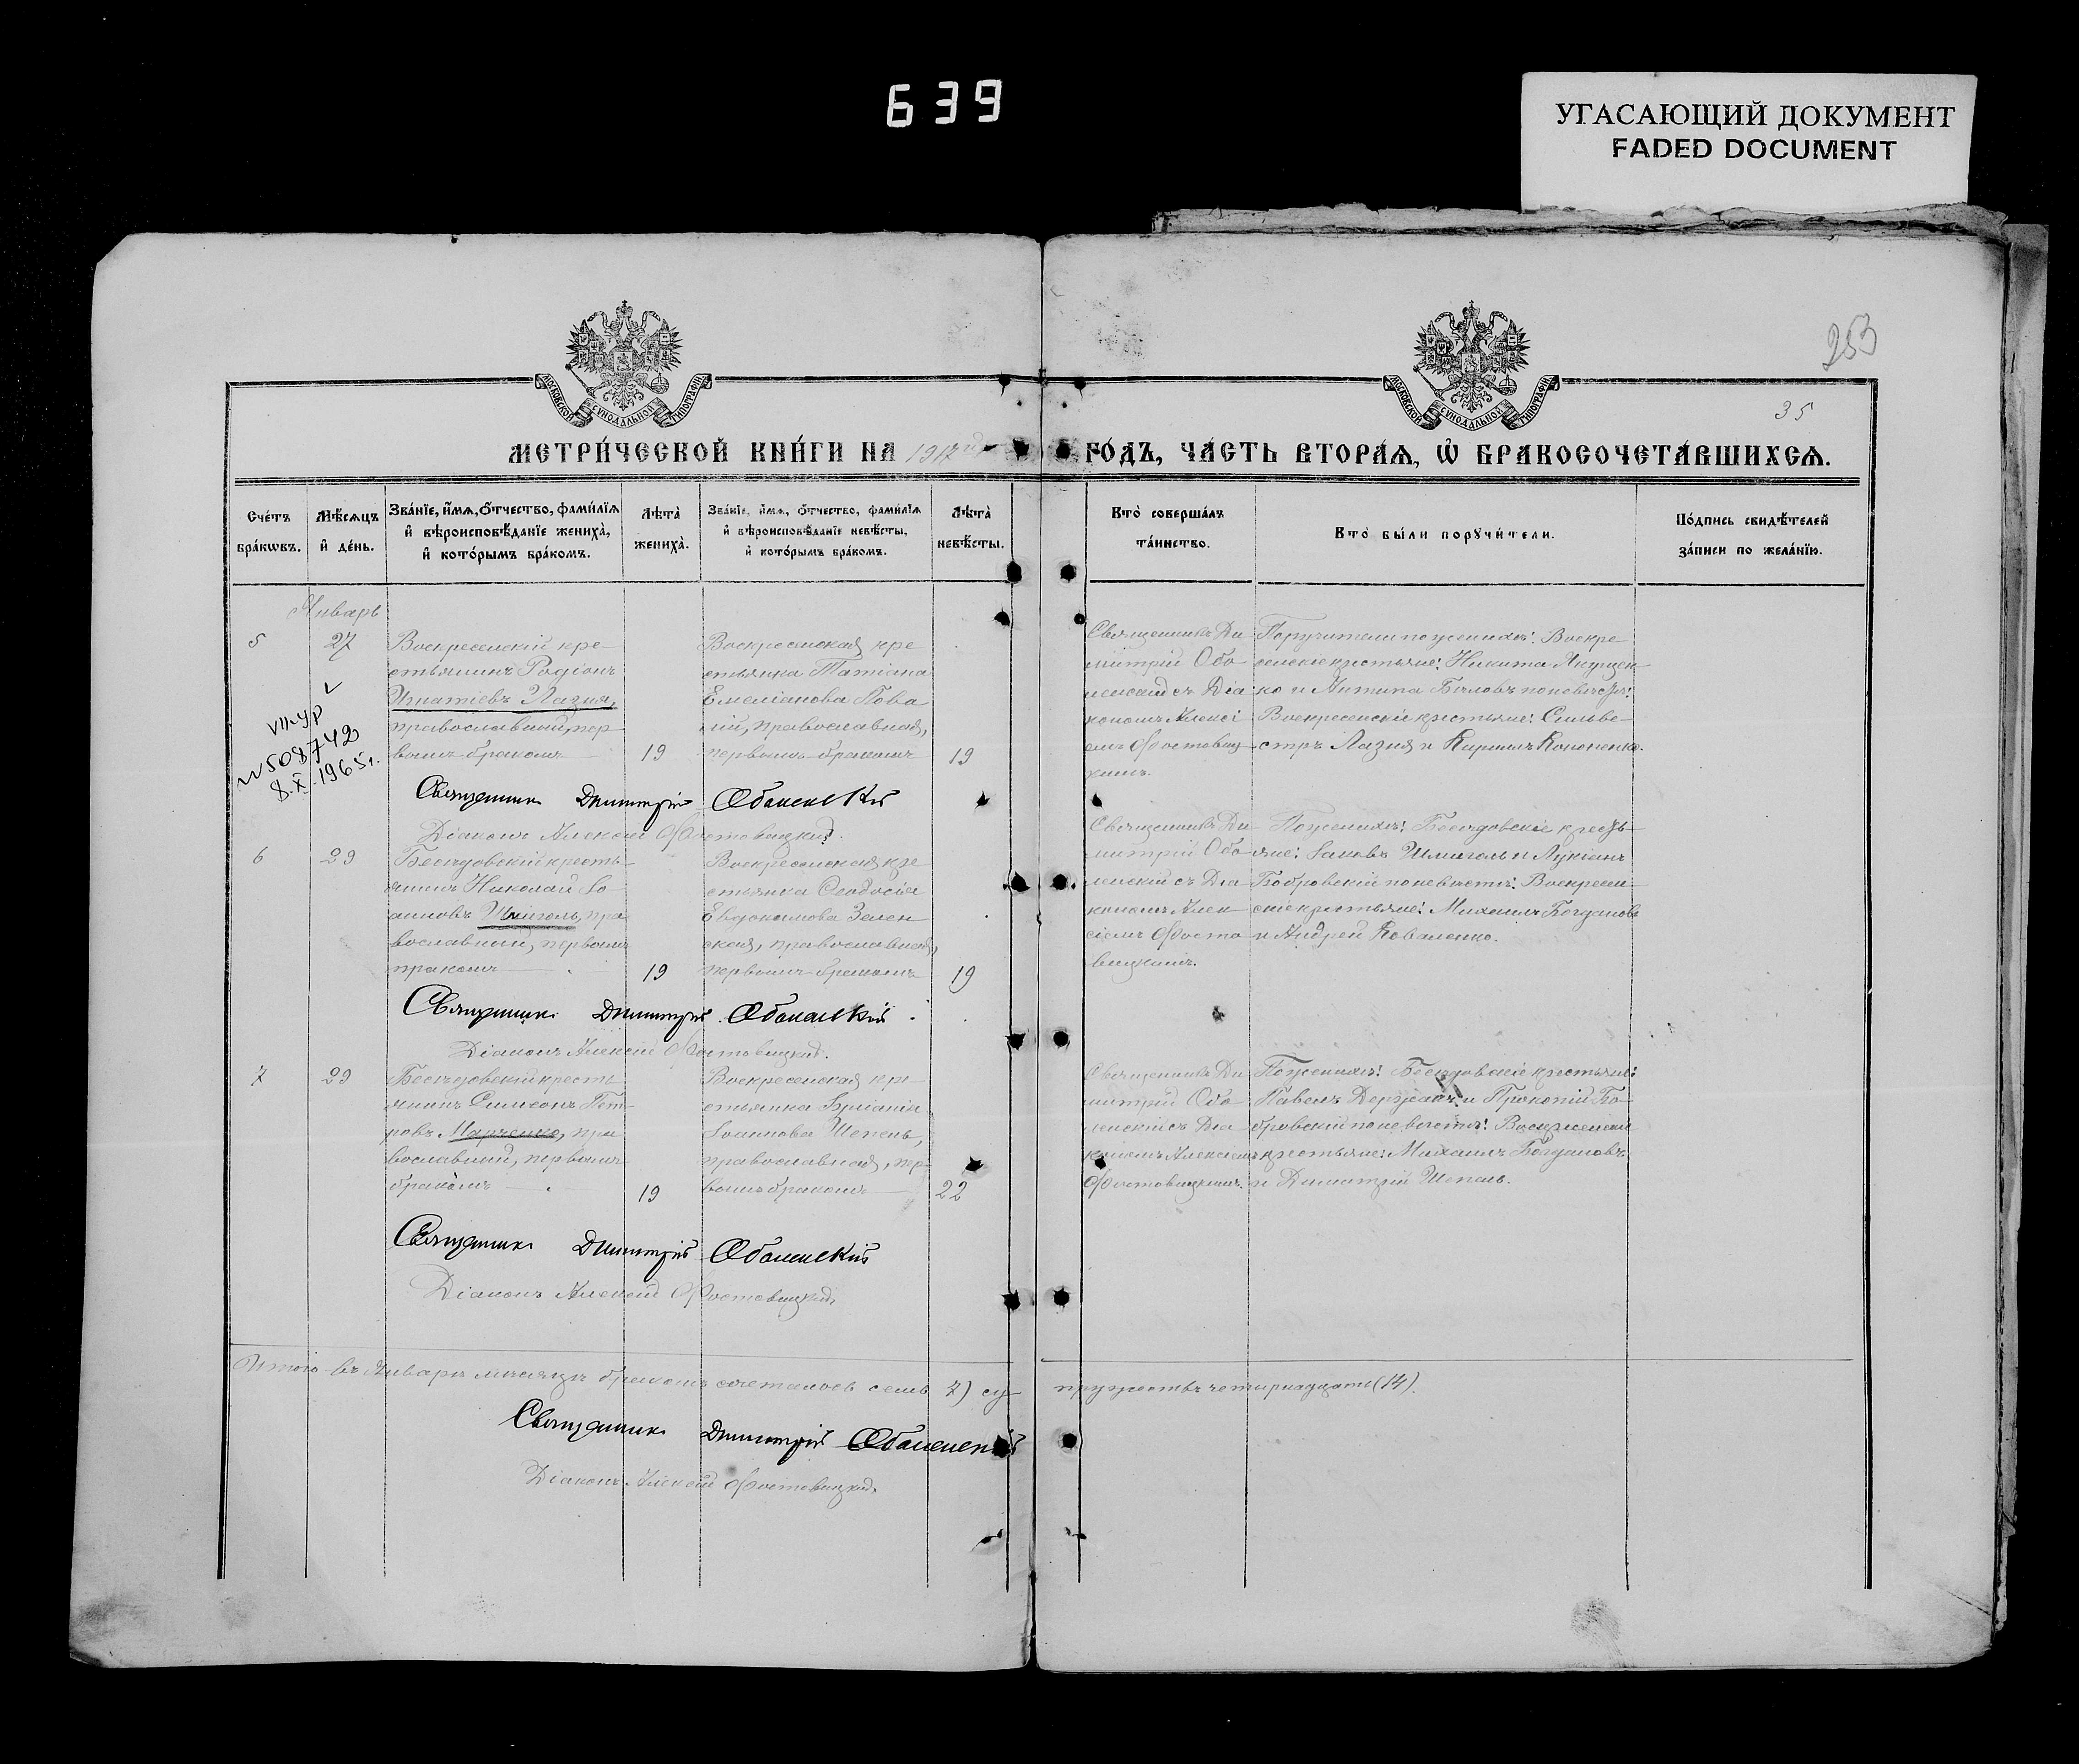 639
УГАСАЮЩИЙ ДОКУМЕНТ
FADED DOCUMENT
253
35
МОСКОВСКОЙ СѴНОДАЛЬНОЙ ТИПОГРАФІИ
МОСКОВСКОЙ СѴНОДАЛЬНОЙ ТИПОГРАФІИ
МЕТРИ́ЧЕСКОЙ КНИ́ГИ НА 1917 ГО́ДЪ, ЧА́СТЬ ВТОРА́Я, Ѡ БРАКОСОЧЕТА́ВШИХСЯ.
Сче́тъ бра́кѡвъ.
Мѣ́сяцъ и де́нь.
Зва́нїе, и́мя, о́тчество, фами́лїя и вѣроисповѣ́данїе жениха̀, и кото́рымъ бра́комъ.
Лѣта̀ жениха̀.
Зва́нїе, и́мя, о́тчество, фами́лїя и вѣроисповѣ́данїе невѣ́сты, и кото́рымъ бра́комъ.
Лѣта̀ невѣ́сты.
Кто̀ соверша́лъ та́инство.
Кто̀ бы́ли порꙋчи́тели.
По́дпись свидѣ́телей за́писи по жела́нїю.
Январь
5
27
Воскресенскій кре-
стьянинъ Родіонъ
Игнатіевъ Лазня,
православный, пер
вымъ бракомъ
19
Воскресенская кре
стьянка Татіана
Емеліанова Пова
лій, православная,
первымъ бракомъ
19
Священникъ Ди
митрій Обо
ленскій съ Діа
кономъ Алексі
емъ Фостовиц
кимъ.
Поручители по женихѣ: Воскре
сенскіе крестьяне: Никита Якущен
ко и Антипа Бѣловъ по невѣстѣ:
Воскресенскіе крестьяне: Сильве-
стръ Лазня и Кириллъ Кононенко.
VII-УР
№508742
8.X.1965г.
Священникъ Димитрій Оболенскій
Діаконъ Алексій Фостовицкій.
6
29
Бесѣдовскій кресть-
янинъ Николай Іо-
анновъ Шмиголь, пра
вославный, первымъ
бракомъ
19
Воскресенская кре
стьянка Ѳеодосія
Евдокимова Зелен
ская, православная,
первымъ бракомъ
19
Священникъ Ди
митрій Обо
ленскій съ Діа
кономъ Алек
сіемъ Фосто
вицкимъ.
По женихѣ: Бесѣдовскіе кресть-
яне: Іаковъ Шмиголь и Лукіанъ
Бобровскій по невѣстѣ: Воскресен
скіе крестьяне: Михаилъ Богдановъ
и Андрей Коваленко.
Священникъ Димитрій Оболенскій
Діаконъ Алексій Фостовицкій.
7
29
Бесѣдовскій кресть
янинъ Симеонъ Пет-
ровъ Марченко, пра
вославный, первымъ
бракомъ
19
Воскресенская кре-
стьянка Іуліанія
Іоаннова Шепель,
православная, пер-
вымъ бракомъ
22
Священникъ Ди
митрій Обо
ленскій съ Діа
кономъ Алексіемъ
Фостовицкимъ.
По женихѣ: Бесѣдовскіе крестьяне:
Павелъ Держанъ и Прокопій Бо-
бровскій по невѣстѣ: Воскресенскіе
крестьяне: Михаилъ Богдановъ
и Димитрій Шепель.
Священникъ Димитрій Оболенскій
Діаконъ Алексій Фостовицкій.
Итого въ Январѣ мѣсяцѣ бракомъ сочеталось семь 7) су пружествъ четырнадцать (14).
Священникъ Димитрій Оболенскій
Діаконъ Алексій Фостовицкій.